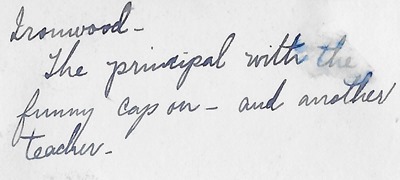 Ironwood -
The principal with the
funny cap on - and another
teacher -